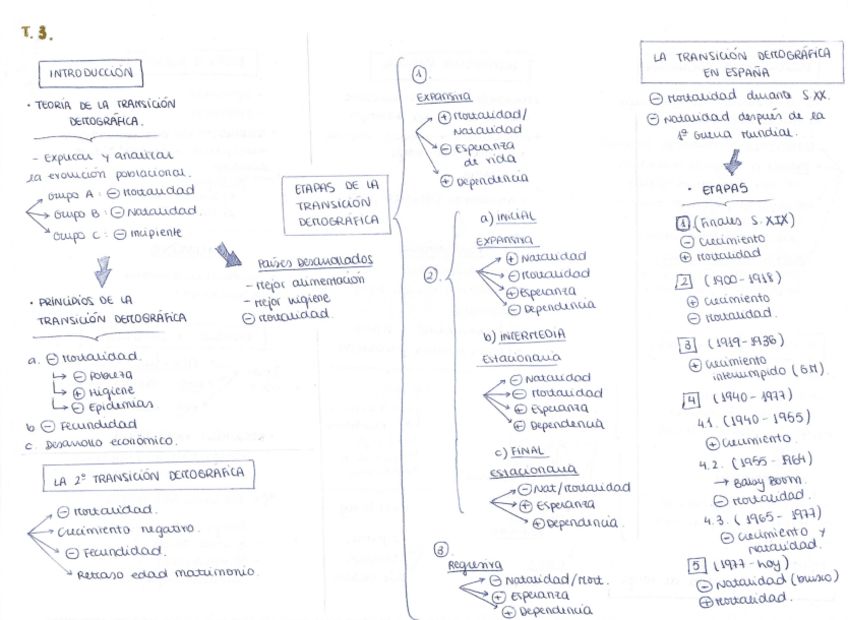 T. 3.
INTRODUCCIÓN
• TEORÍA DE LA TRANSICIÓN
DEMOGRÁFICA.
- Explicar y analizar
la evolución poblacional.
Grupo A: ⊖ Mortalidad
Grupo B: ⊖ Natalidad
Grupo C: ⊖ incipiente
Países Desarrollados
- Mejor alimentación
- Mejor higiene
⊖ Mortalidad.
• PRINCIPIOS DE LA
TRANSICIÓN DEMOGRÁFICA
a. ⊖ Mortalidad.
⊖ Pobreza
⊕ Higiene
⊖ Epidemias.
b ⊖ Fecundidad
c. Desarrollo económico.
LA 2ª TRANSICIÓN DEMOGRÁFICA
⊖ Mortalidad.
Crecimiento negativo.
⊖ Fecundidad.
Retraso edad matrimonio.
ETAPAS DE LA
TRANSICIÓN
DEMOGRÁFICA
1.
Expansiva
⊕ Mortalidad/
Natalidad
⊖ Esperanza
de vida
⊕ Dependencia
2.
a) INICIAL
EXPANSIVA
⊕ Natalidad
⊖ Mortalidad
⊕ Esperanza
⊖ Dependencia
b) INTERMEDIA
Estacionaria
⊖ Natalidad
⊖ Mortalidad
⊕ Esperanza
⊖ Dependencia
c) FINAL
Estacionaria
⊖ Nat/Mortalidad
⊕ Esperanza
⊕ Dependencia.
3.
Regresiva
⊖ Natalidad/Mort.
⊕ Esperanza
⊕ Dependencia
LA TRANSICIÓN DEMOGRÁFICA
EN ESPAÑA
⊖ Mortalidad durante S.XX.
⊖ Natalidad después de la
1ª Guerra Mundial.
• ETAPAS
1 (Finales S. XIX)
⊖ Crecimiento
⊕ Mortalidad
2 (1900-1918)
⊕ Crecimiento
⊖ Mortalidad.
3 (1919-1936)
⊕ Crecimiento
interrumpido (GM).
4 (1940-1977)
4.1. (1940-1955)
⊕ Crecimiento.
4.2. (1955-1964)
→ Baby Boom.
⊖ Mortalidad.
4.3. (1965-1977)
⊖ Crecimiento y
Natalidad.
5 (1977-hoy)
⊖ Natalidad (brusco)
⊕ Mortalidad.